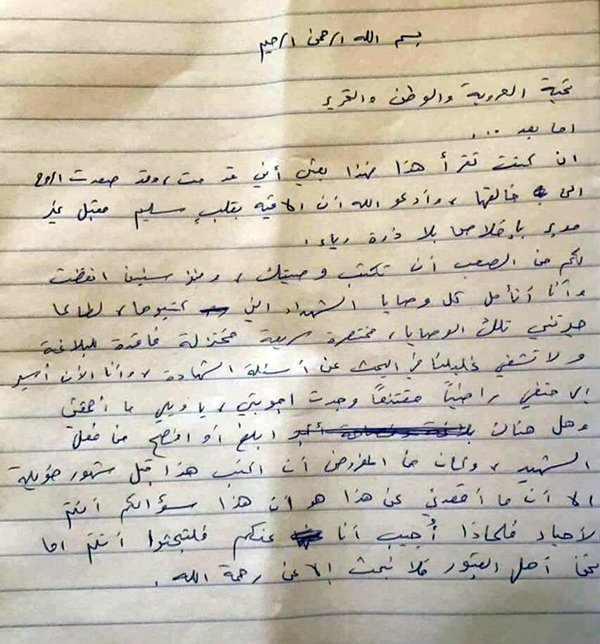 بسم الله الرحمن الرحيم
تحية العروبة والوطن والتحرير
اما بعد ...
ان كنت تقرأ هذا فهذا يعني أني قد مت، وقد صعدت الروح
الى خالقها، وأدعو الله أن الاقيه بقلبٍ سليم مقبل غير
مدبر بإخلاص بلا ذرة رياء.
لكم من الصعب أن تكتب وصيتك، ومنذ سنين انقضت
وأنا أتأمل كل وصايا الشهداء التي كتبوها، لطالما
حيرتني تلك الوصايا، مختصرة سريعة مختزلة فاقدة للبلاغة
ولا تشفي غليلنا في البحث عن أسئلة الشهادة، وأنا الآن أسير
إلى حتفي راضياً مقتنعاً وجدت أجوبتي، يا ويلي ما أحمقني
وهل هناك ابلغ أو افصح من فعل
الشهيد، وكان من المفروض أن اكتب هذا قبل شهور طويلة
الا أن ما أقعدني عن هذا هو أن هذا سؤالكم أنتم
الأحياء فلماذا أُجيب أنا عنكم فلتبحثوا أنتم اما
نحن أهل القبور فلا نبحث إلا عن رحمة الله.